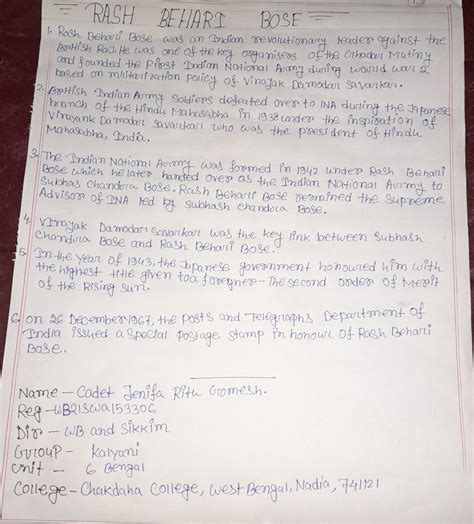 RASH BEHARI BOSE
1. Rash Behari Bose was an Indian revolutionary leader against the
British Raj. He was one of the key organisers of the Ghadar Mutiny
and founded the first Indian National Army during world war 2
based on militarization policy of Vinayak Damodar Savarkar.
2. British Indian Army Soldiers defeated over to INA during the Japanese
branch of the Hindu Mahasabha in 1938 under the inspiration of
Vinayank Damodar Savarkar who was the president of Hindu
Mahasabha, India.
3. The Indian National Army was formed in 1942 under Rash Behari
Bose which he later handed over as the Indian National Army to
Subhas Chandra Bose. Rash Behari Bose remained the Supreme
Advisor of INA led by Subhash Chandra Bose.
4. Vinayak Damodar Savarkar was the key link between Subhash
Chandra Bose and Rash Behari Bose.
5. In the year of 1943, the Japanese government honoured him with
the highest title given to a foreigner - The second order of Merit
of the Rising sun.
6. on 26 December 1967, the posts and Telegraphs Department of
India issued a special postage stamp in honour of Rash Behari
Bose.
Name - Cadet Jenifa Ritu Gomesh.
Reg - WB21SWA153306
Dir - WB and Sikkim
Group - Kalyani
Unit - 6 Bengal
College - Chakdaha College, West Bengal, Nadia, 741121